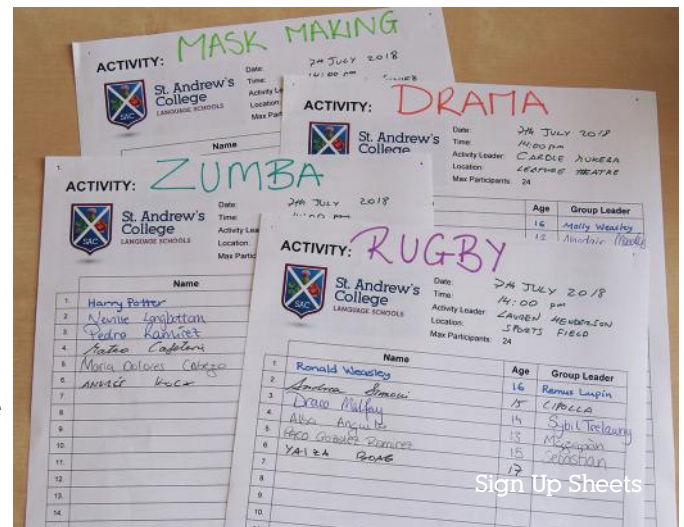 ACTIVITY: MASK MAKING
St. Andrew's
College
LANGUAGE SCHOOLS
SAC
Date: 7th JULY 2018
Time: 14:00 pm
Activity
Location:
Max
Name
ACTIVITY: DRAMA
St. Andrew's
College
Date: 7th JULY 2018
Time: 14:00 pm
Activity Leader: CAROLE
Location: LECTURE THEATRE
Max Participants: 24
Age Group Leader
16 Molly Weasley
ACTIVITY: ZUMBA
St. Andrew's
College
LANGUAGE SCHOOLS
SAC
Date: 7th JULY 2018
Time:
Activity
Location:
Max
Name
1. Harry Potter
2. Neville Longbottom
3. Pedro Ramirez
4. Mateo
5. Maria Dolores Cabezo
6.
7.
8.
9.
10.
11.
12.
13.
14.
ACTIVITY: RUGBY
St. Andrew's
College
LANGUAGE SCHOOLS
SAC
Date: 7th JULY 2018
Time: 14:00 pm
Activity Leader: LAUREN HENDERSON
Location: SPORTS FIELD
Max Participants: 24
Name Age Group Leader
1. Ronald Weasley 16 Remus Lupin
2. Andrea Simoni 15 CIPOLLA
3. Draco Malfoy 14 Sybil Trelawny
4. Alba 13 Mazapán
5. PACO Ramirez 15 Sebastian
6. YAIZA 17
7.
8.
9.
10.
Sign Up Sheets